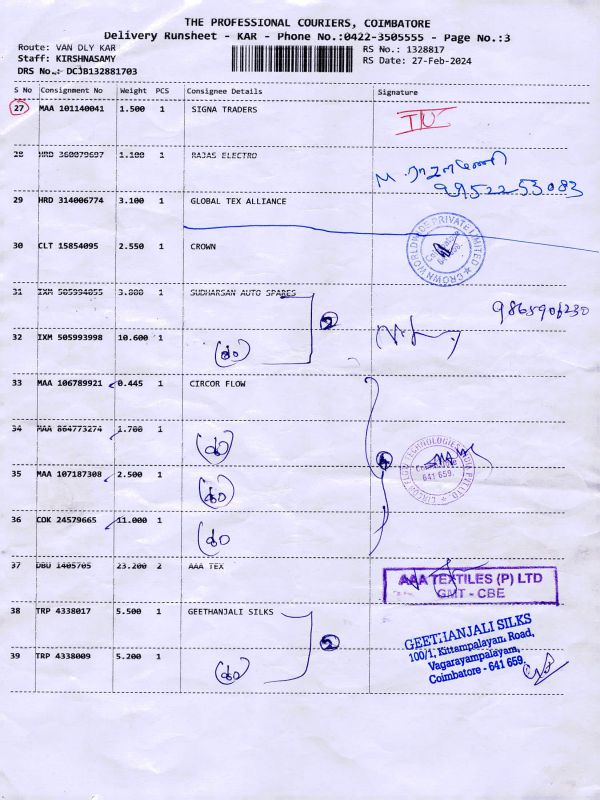 THE PROFESSIONAL COURIERS, COIMBATORE
Delivery Runsheet - KAR - Phone No.:0422-3505555 - Page No.:3
Route: VAN DLY KAR
RS No.: 1328817
Staff: KIRSHNASAMY
RS Date: 27-Feb-2024
DRS No.: DCJB132881703
S No Consignment No Weight PCS Consignee Details Signature
27 MAA 101140041 1.500 1 SIGNA TRADERS
28 HRD 360079697 1.100 1 RAJAS ELECTRO
9952253083
29 HRD 314006774 3.100 1 GLOBAL TEX ALLIANCE
30 CLT 15854095 2.550 1 CROWN
CROWN WORLDWIDE PRIVATE LIMITED
31 IXM 505994055 3.800 1 SUDHARSAN AUTO SPARES
2
9865906230
32 IXM 505993998 10.600 1 (do)
33 MAA 106789921 0.445 1 CIRCOR FLOW
34 MAA 864773274 1.700 1 (do)
4
641 659.
35 MAA 107187308 2.500 1 (do)
36 COK 24579665 11.000 1 (do)
37 DBU 1405705 23.200 2 AAA TEX
AAA TEXTILES (P) LTD
GMT - CBE
38 TRP 4338017 5.500 1 GEETHANJALI SILKS
2
GEETHANJALI SILKS
100/1, Kittampalayan, Road,
Vagarayampalayam,
Coimbatore - 641 659.
39 TRP 4338009 5.200 1 (do)